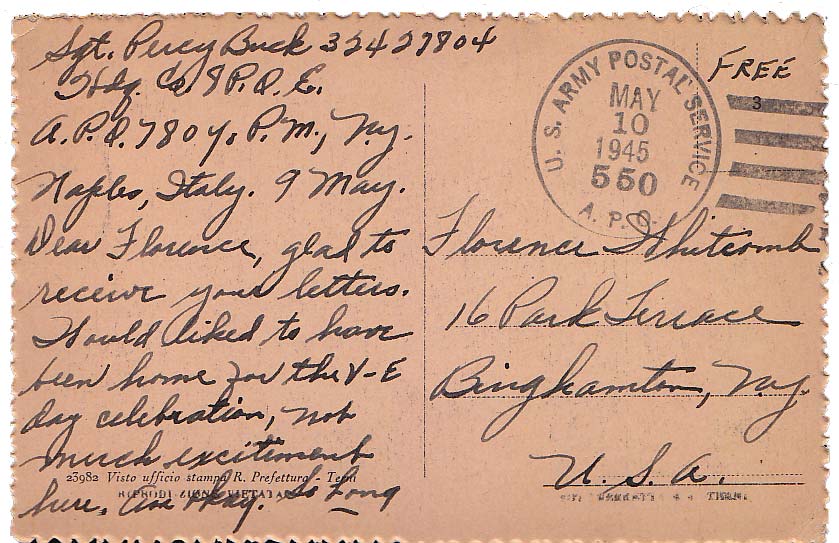 Sgt. Percy Buck 32427804
Hdq. Co. 8 P.O.E.
A.P.O. 780 %. P.M., N.y.
Naples, Italy. 9 May.
Dear Florence, glad to
receive your letters.
Would liked to have
been home for the V-E
day celebration, not
much excitement
here. Am Okay. So Long
23982 Visto ufficio stampa R. Prefettura - Terni
RIPRODUZIONE VIETATA
U. S. ARMY POSTAL SERVICE
MAY
10
1945
550
A. P. O.
FREE
3
Florence Whitcomb
16 Park Terrace
Binghamton, N.y.
U.S.A.